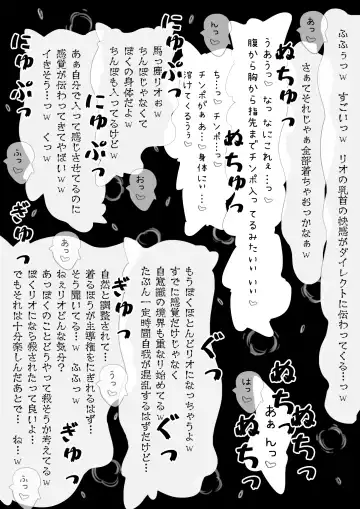 ふふぅっw すごいっw リオの乳首の快感がダイレクトに伝わってくる…っw
さぁてそれじゃぁ全部着ちゃおっかなぁw
あっ♡
ぬちゅっ
うあうっ♡ なっ なにこれぇ…っ♡
腹から胸から指先までチンポ入ってるみたいいいい♡
ち…っ♡ チンポっ♡
チンポがぁあ…っ♡ 身体にい…♡
溶けてくるうぅ♡
ぬちゅっ
んっ♡
にゅぷっ
馬っ鹿リオぉw
ちんぽじゃなくて
ぼくの身体だよw
ちんぽも入ってるけどw
おっ♡
にゅぷっ
あぁ自分で入って感じさせてるのに
感覚が伝わってきてやばいぃw
イきそう…っw くっw
ふっ♡
ぬちっ
ぬちっ
ぬちっ
はっ♡
あぁんっ♡
もうぼくほとんどリオになっちゃうよw
すでに感覚だけじゃなく
自意識の境界も重なり始めてるw
たぶん一定時間自我が混乱するはずだけど…
ぐっ
ぎゅっ
うっ♡
自然と調整されて…
着るほうが主導権をにぎれるはず…
そう聞いてる…w ふふっw
ねぇリオどんな気分?
あっぼくのことどうやって殺そうか考えてるw
ぼくリオになら殺されたって良いよ…
でもそれは十分楽しんだあとで… ね…w
あっ♡
ぎゅっ
ぎゅっ
ふっ♡